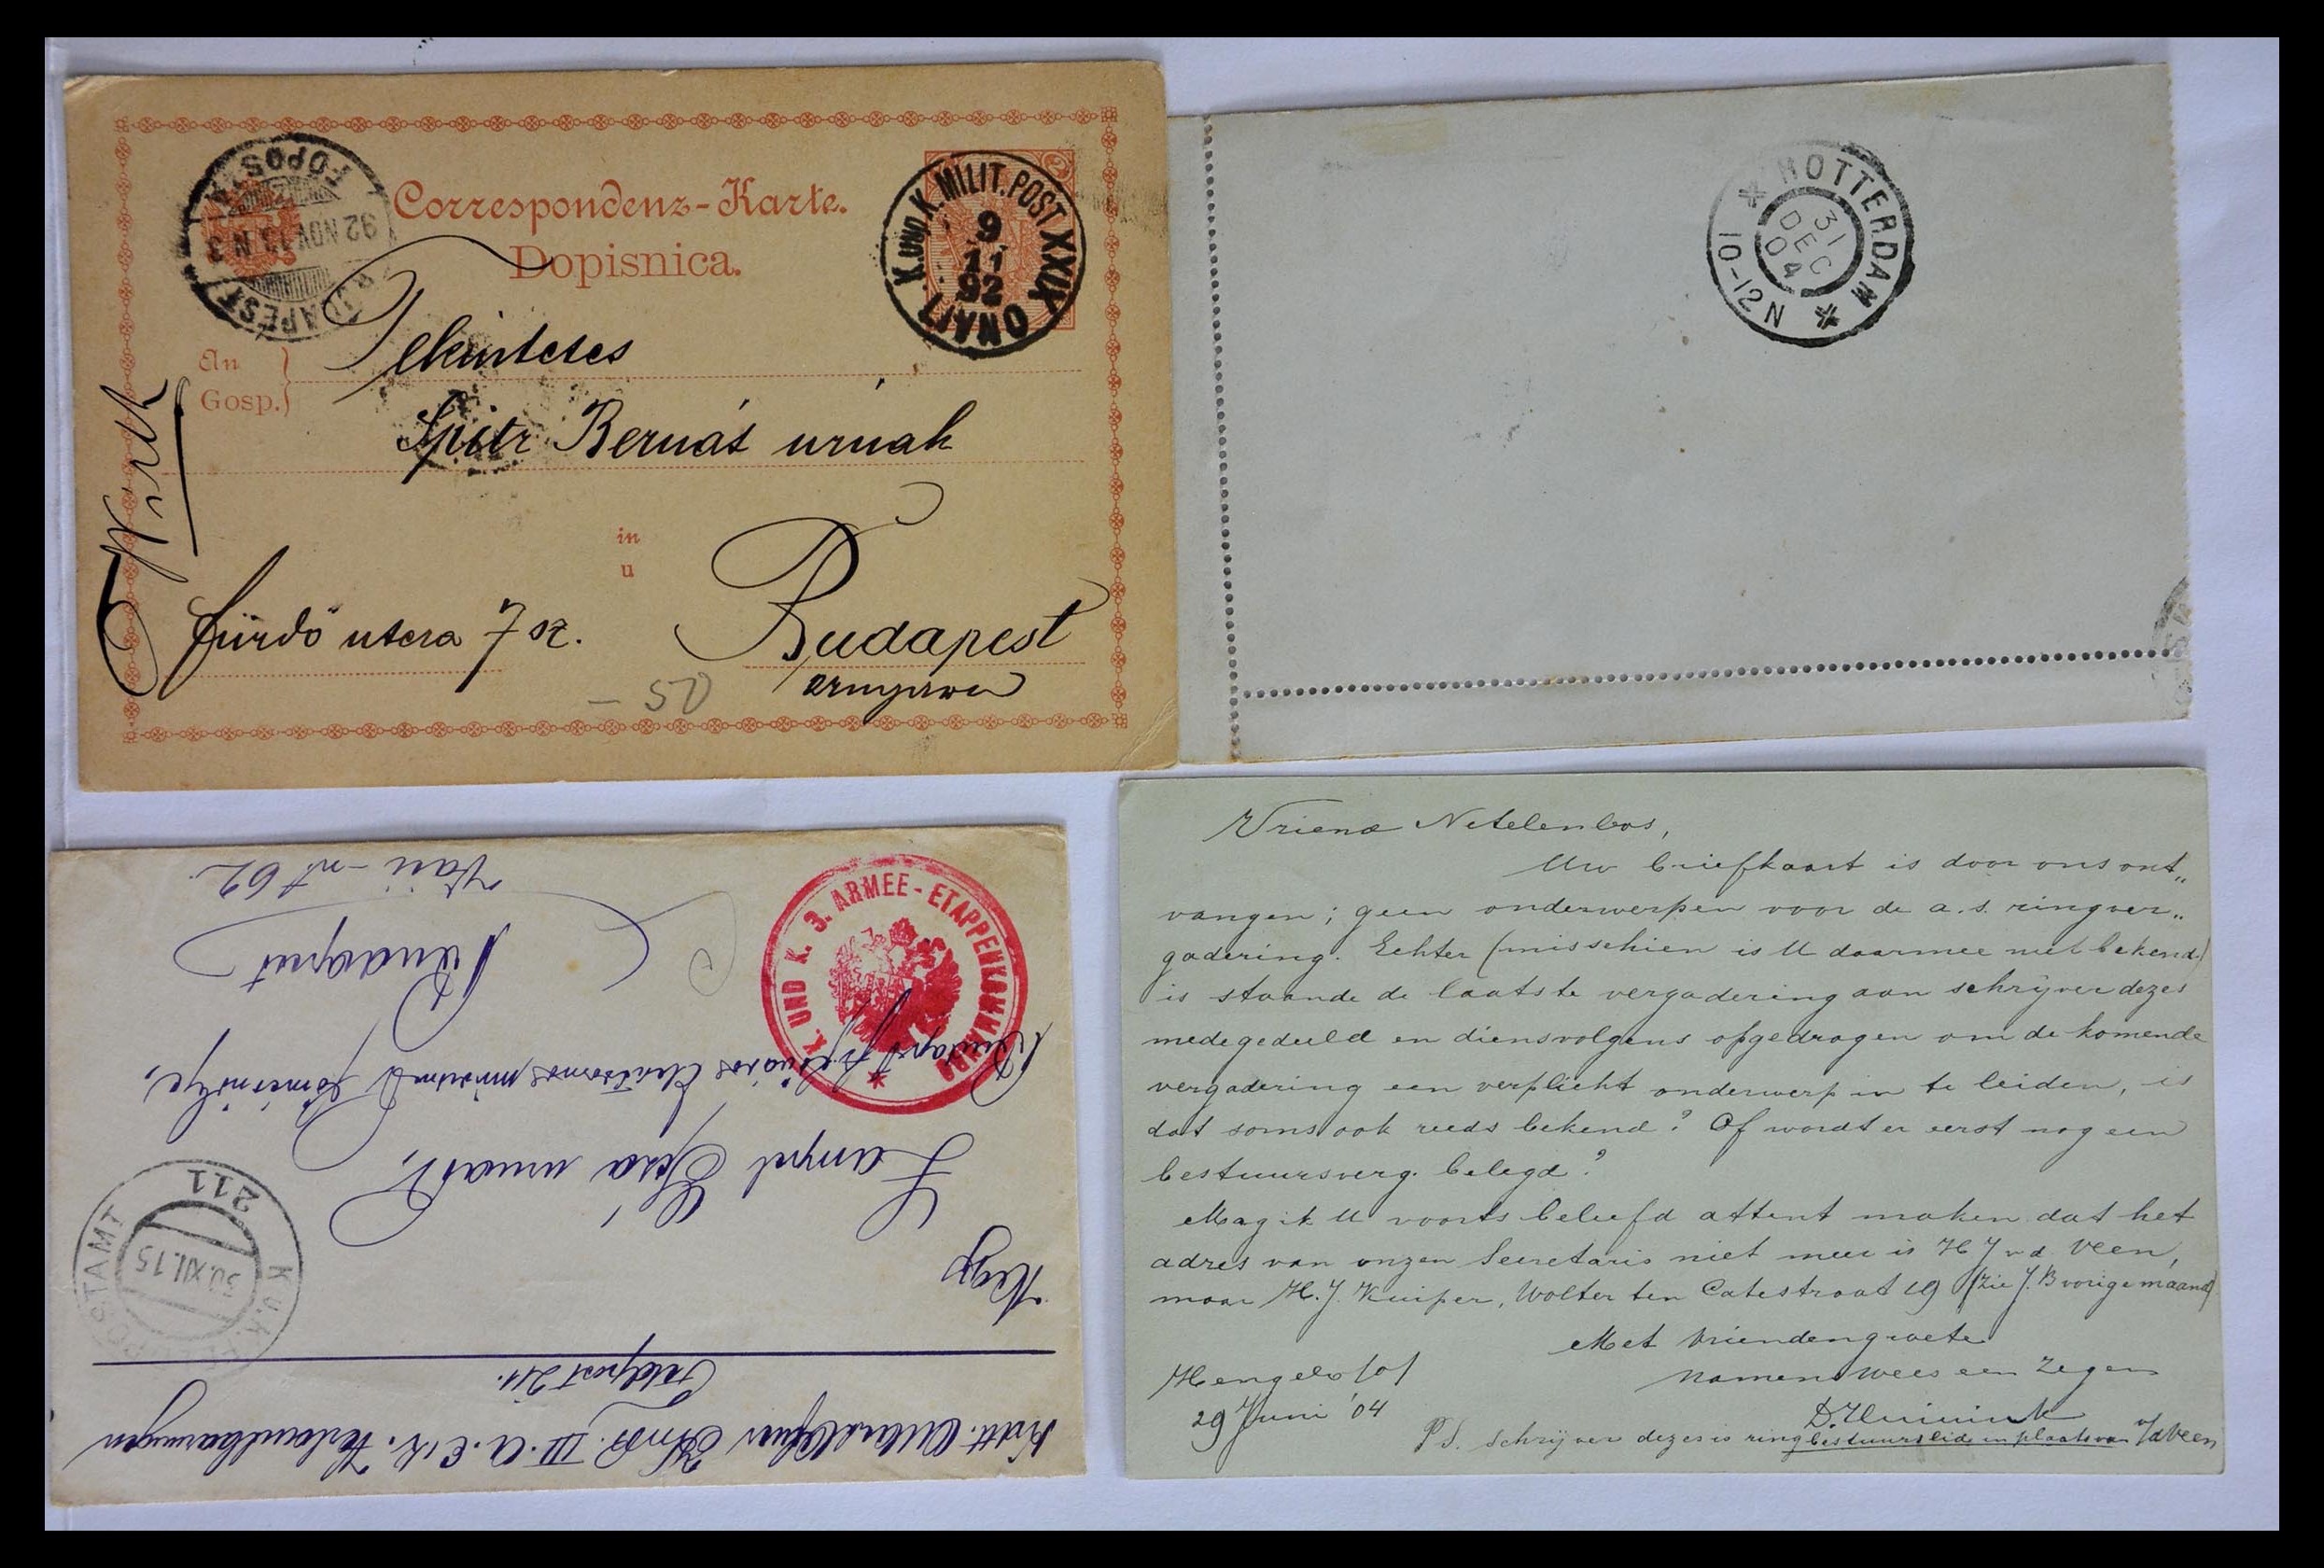 Correspondenz-Karte.
Dopisnica.
BUDAPEST
92 NOV 13 N 3
FŐPOSTA
K. UND K. MILIT. POST XXIX
9
11
92
2
An
Gosp.
Tekintetes
Spitz Bernát urnak
in
u
fürdő utcza 7 sz.
Budapest
- 50
ROTTERDAM
31
DEC
04
10-12N
K. UND K. 3. ARMEE-ETAPPENKOMMANDO
III. A. E. K.
Feldpost 211.
Lampel Géza urnak,
Budapest
62
K.U.K. FELDPOSTAMT
30.XII.15
211
Vriend Netelenbos,
Uw briefkaart is door ons ont„
vangen; geen onderwerpen voor de a.s. ringver„
gadering. Echter (misschien is U daarmee niet bekend)
is staande de laatste vergadering aan schrijver dezes
medegedeeld en diensvolgens opgedragen om de komende
vergadering een verplicht onderwerp in te leiden, is
dat soms ook reeds bekend? Of wordt er eerst nog een
bestuursverg. belegd?
Mag ik U voorts beleefd attent maken dat het
adres van onzen Secretaris niet meer is H J v d Veen,
maar H. J. Kuiper, Wolter ten Catestraat 19 (zie J.B vorige maand)
Met Vriendengroete
Namens Wees een Zegen
Hengelo (o)
29 Juni '04
P.S. Schrijver dezes is ringbestuurslid in plaats van v/d Veen